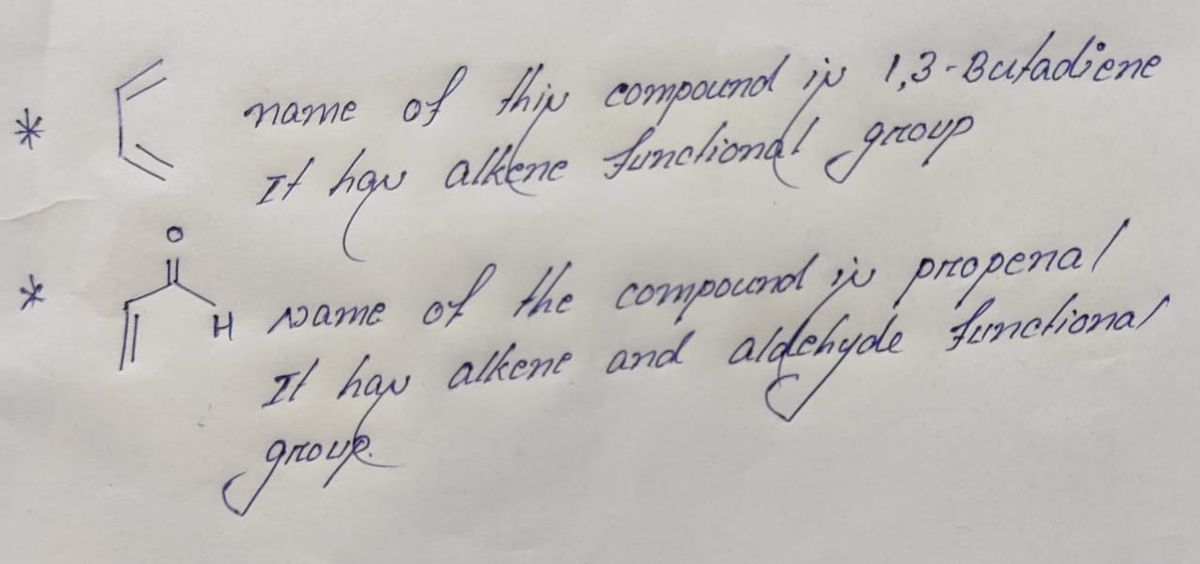 * name of this compound is 1,3-Butadiene
It has alkene functional group
O
* H Name of the compound is propenal
It has alkene and aldehyde functional
group.